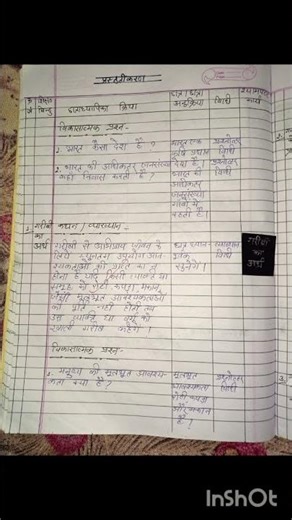 प्रस्तुतीकरण
क्र
सं
शिक्षण
बिन्दु
छात्राध्यापिका क्रिया
छात्र / छात्रा
विधि
श्यामपट्ट
कार्य
विकासात्मक प्रश्न-
1. भारत कैसा देश है ?
भारत एक
कृषि प्रधान
देश है।
विधि
2. भारत की अधिकतर जनसंख्या
कहाँ निवास करती है ?
भारत की
अधिकतर
जनसंख्या
गाँवो में
रहती है।
विधि
गरीबी
का
अर्थ
कथन / व्याख्यान -
गरीबी से अभिप्राय जीवन के
लिये न्यूनतम उपभोग आव-
श्यकताओं की प्राप्ति का न
होना है यदि किसी व्यक्ति या
समूह को रोटी कपड़ा, मकान,
जैसी मूलभूत आवश्यकताओं
की पूर्ति नहीं होगी तब
उस व्यक्ति या समूह को
गरीब कहेंगे।
छात्र ध्यान
पूर्वक
सुनेंगे।
व्याख्यान
विधि
गरीबी
का
अर्थ
विकासात्मक प्रश्न-
1. मनुष्य की मूलभूत आवश्य-
कता क्या है ?
मूलभूत
आवश्यकता
रोटी कपड़ा
और मकान
है।
प्रश्नोत्तर
विधि
InShOt